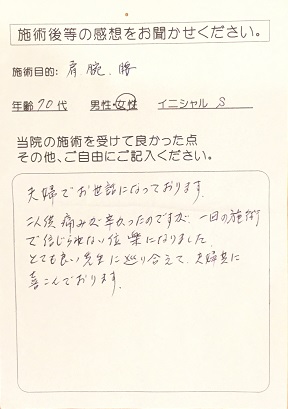 施術後等の感想をお聞かせください。
施術目的: 肩 腕 膝
年齢 70代 男性・女性 イニシャル S
当院の施術を受けて良かった点
その他、ご自由にご記入ください。
夫婦でお世話になっております。
痛みが辛かったのですが、一回の施術
で信じられない位 楽になりました。
とても良い先生に巡り合えて、夫婦共に
喜こんでおります。